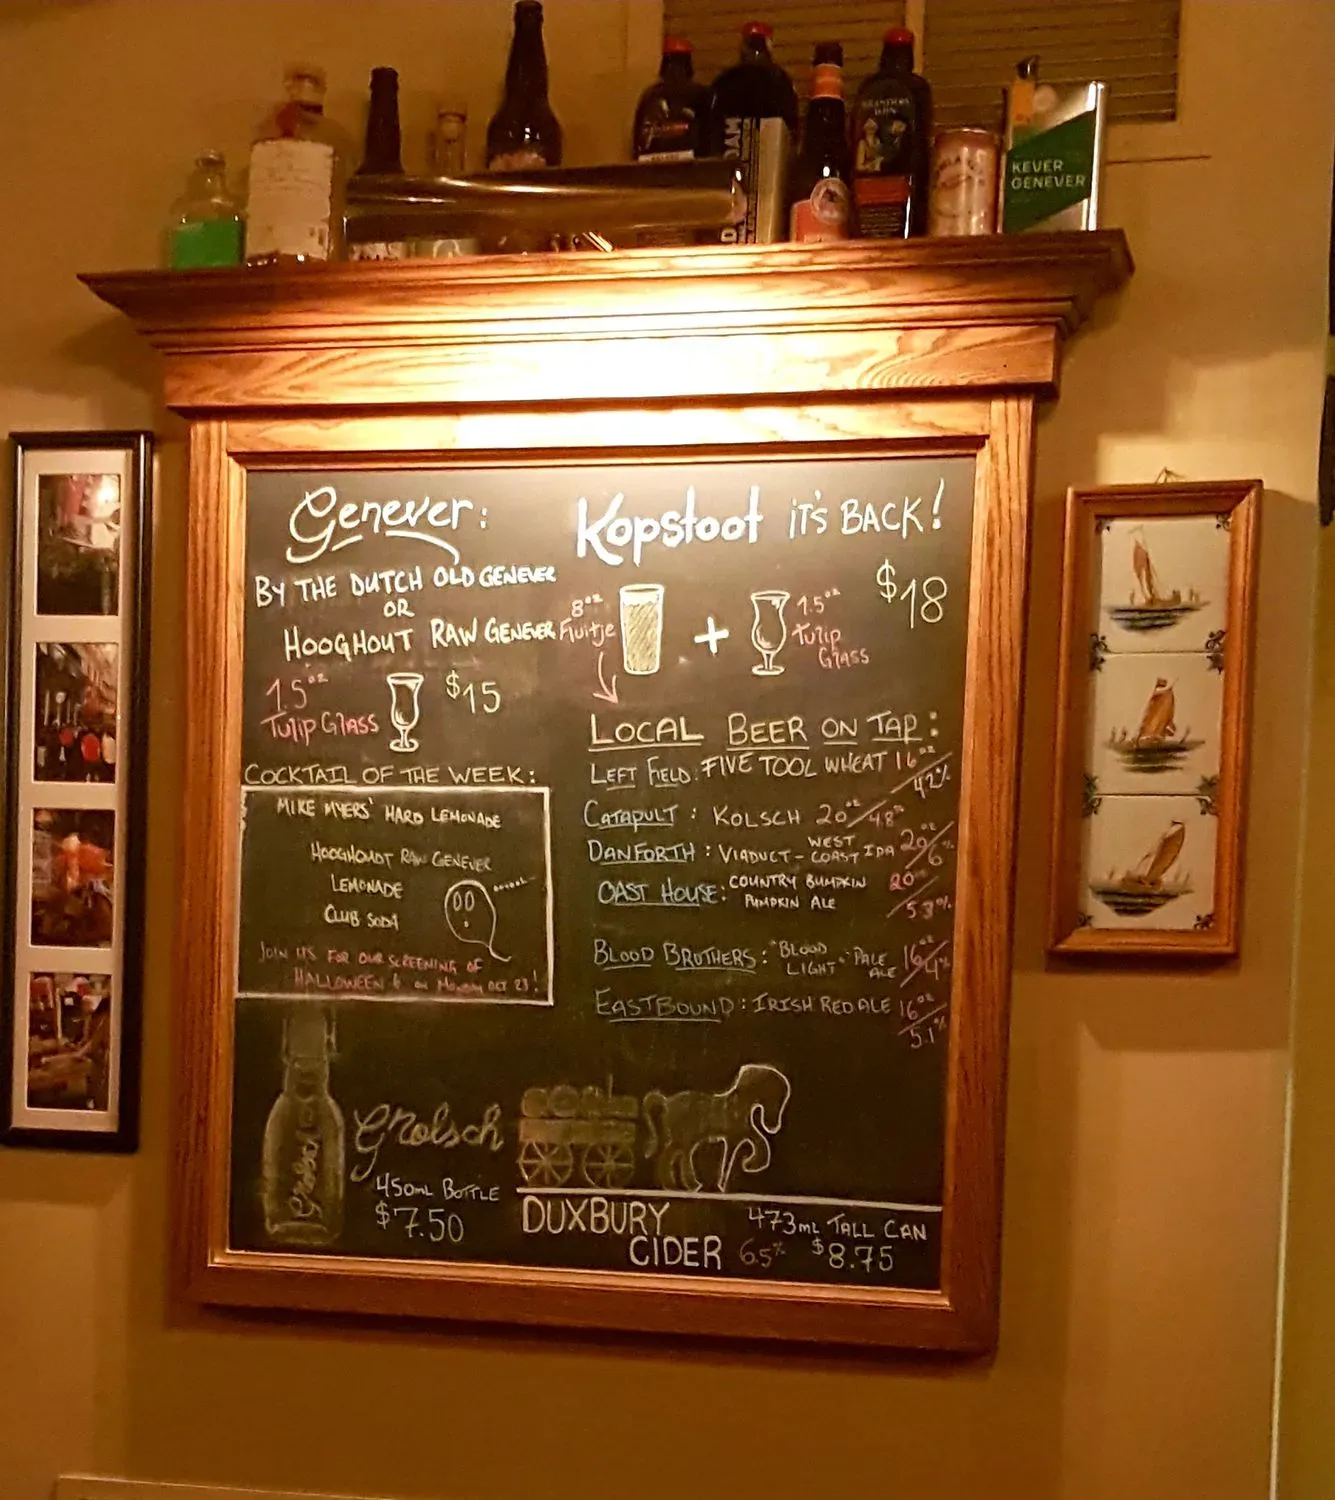 KEVER
GENEVER
Genever:
BY THE DUTCH OLD GENEVER
OR
HOOGHOUT RAW GENEVER
1.5oz
Tulip Glass
$15
COCKTAIL OF THE WEEK:
MIKE MYERS' HARD LEMONADE
HOOGHOUDT RAW GENEVER
LEMONADE
CLUB SODA
JOIN US FOR OUR SCREENING OF
HALLOWEEN 6 on Monday OCT 23!
Kopstoot it's BACK!
$18
8oz
Fluitje
+
1.5oz
Tulip
Glass
LOCAL BEER ON TAP:
LEFT FIELD: FIVE TOOL WHEAT 16oz/4.2%
CATAPULT: KOLSCH 20oz/4.8%
DANFORTH: VIADUCT - WEST COAST IPA 20oz/6%
OAST HOUSE: COUNTRY BUMPKIN PUMPKIN ALE 20oz/5.3%
BLOOD BROTHERS: "BLOOD LIGHT" PALE ALE 16oz/4%
EASTBOUND: IRISH RED ALE 16oz/5.1%
Grolsch
Grolsch
450mL BOTTLE
$7.50
DUXBURY
CIDER 6.5%
473mL TALL CAN
$8.75